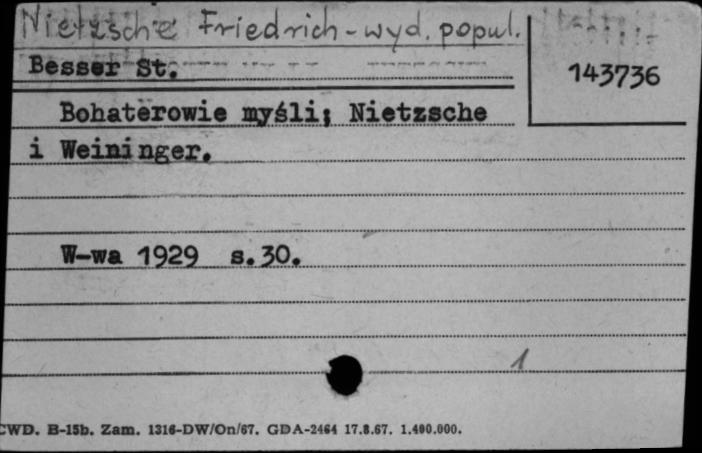 Nietzsche Friedrich - wyd. popul.
Besser St.
143736
Bohaterowie myśli; Nietzsche
i Weininger.
W-wa 1929 s.30.
1
CWD. B-15b. Zam. 1316-DW/On/67. GDA-2464 17.8.67. 1.400.000.